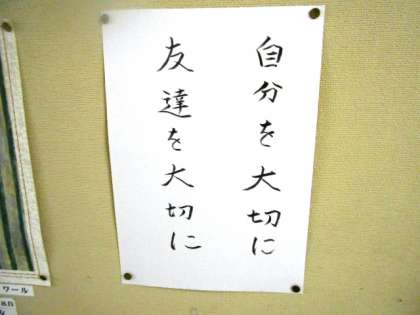 自分を大切に
友達を大切に
ワール